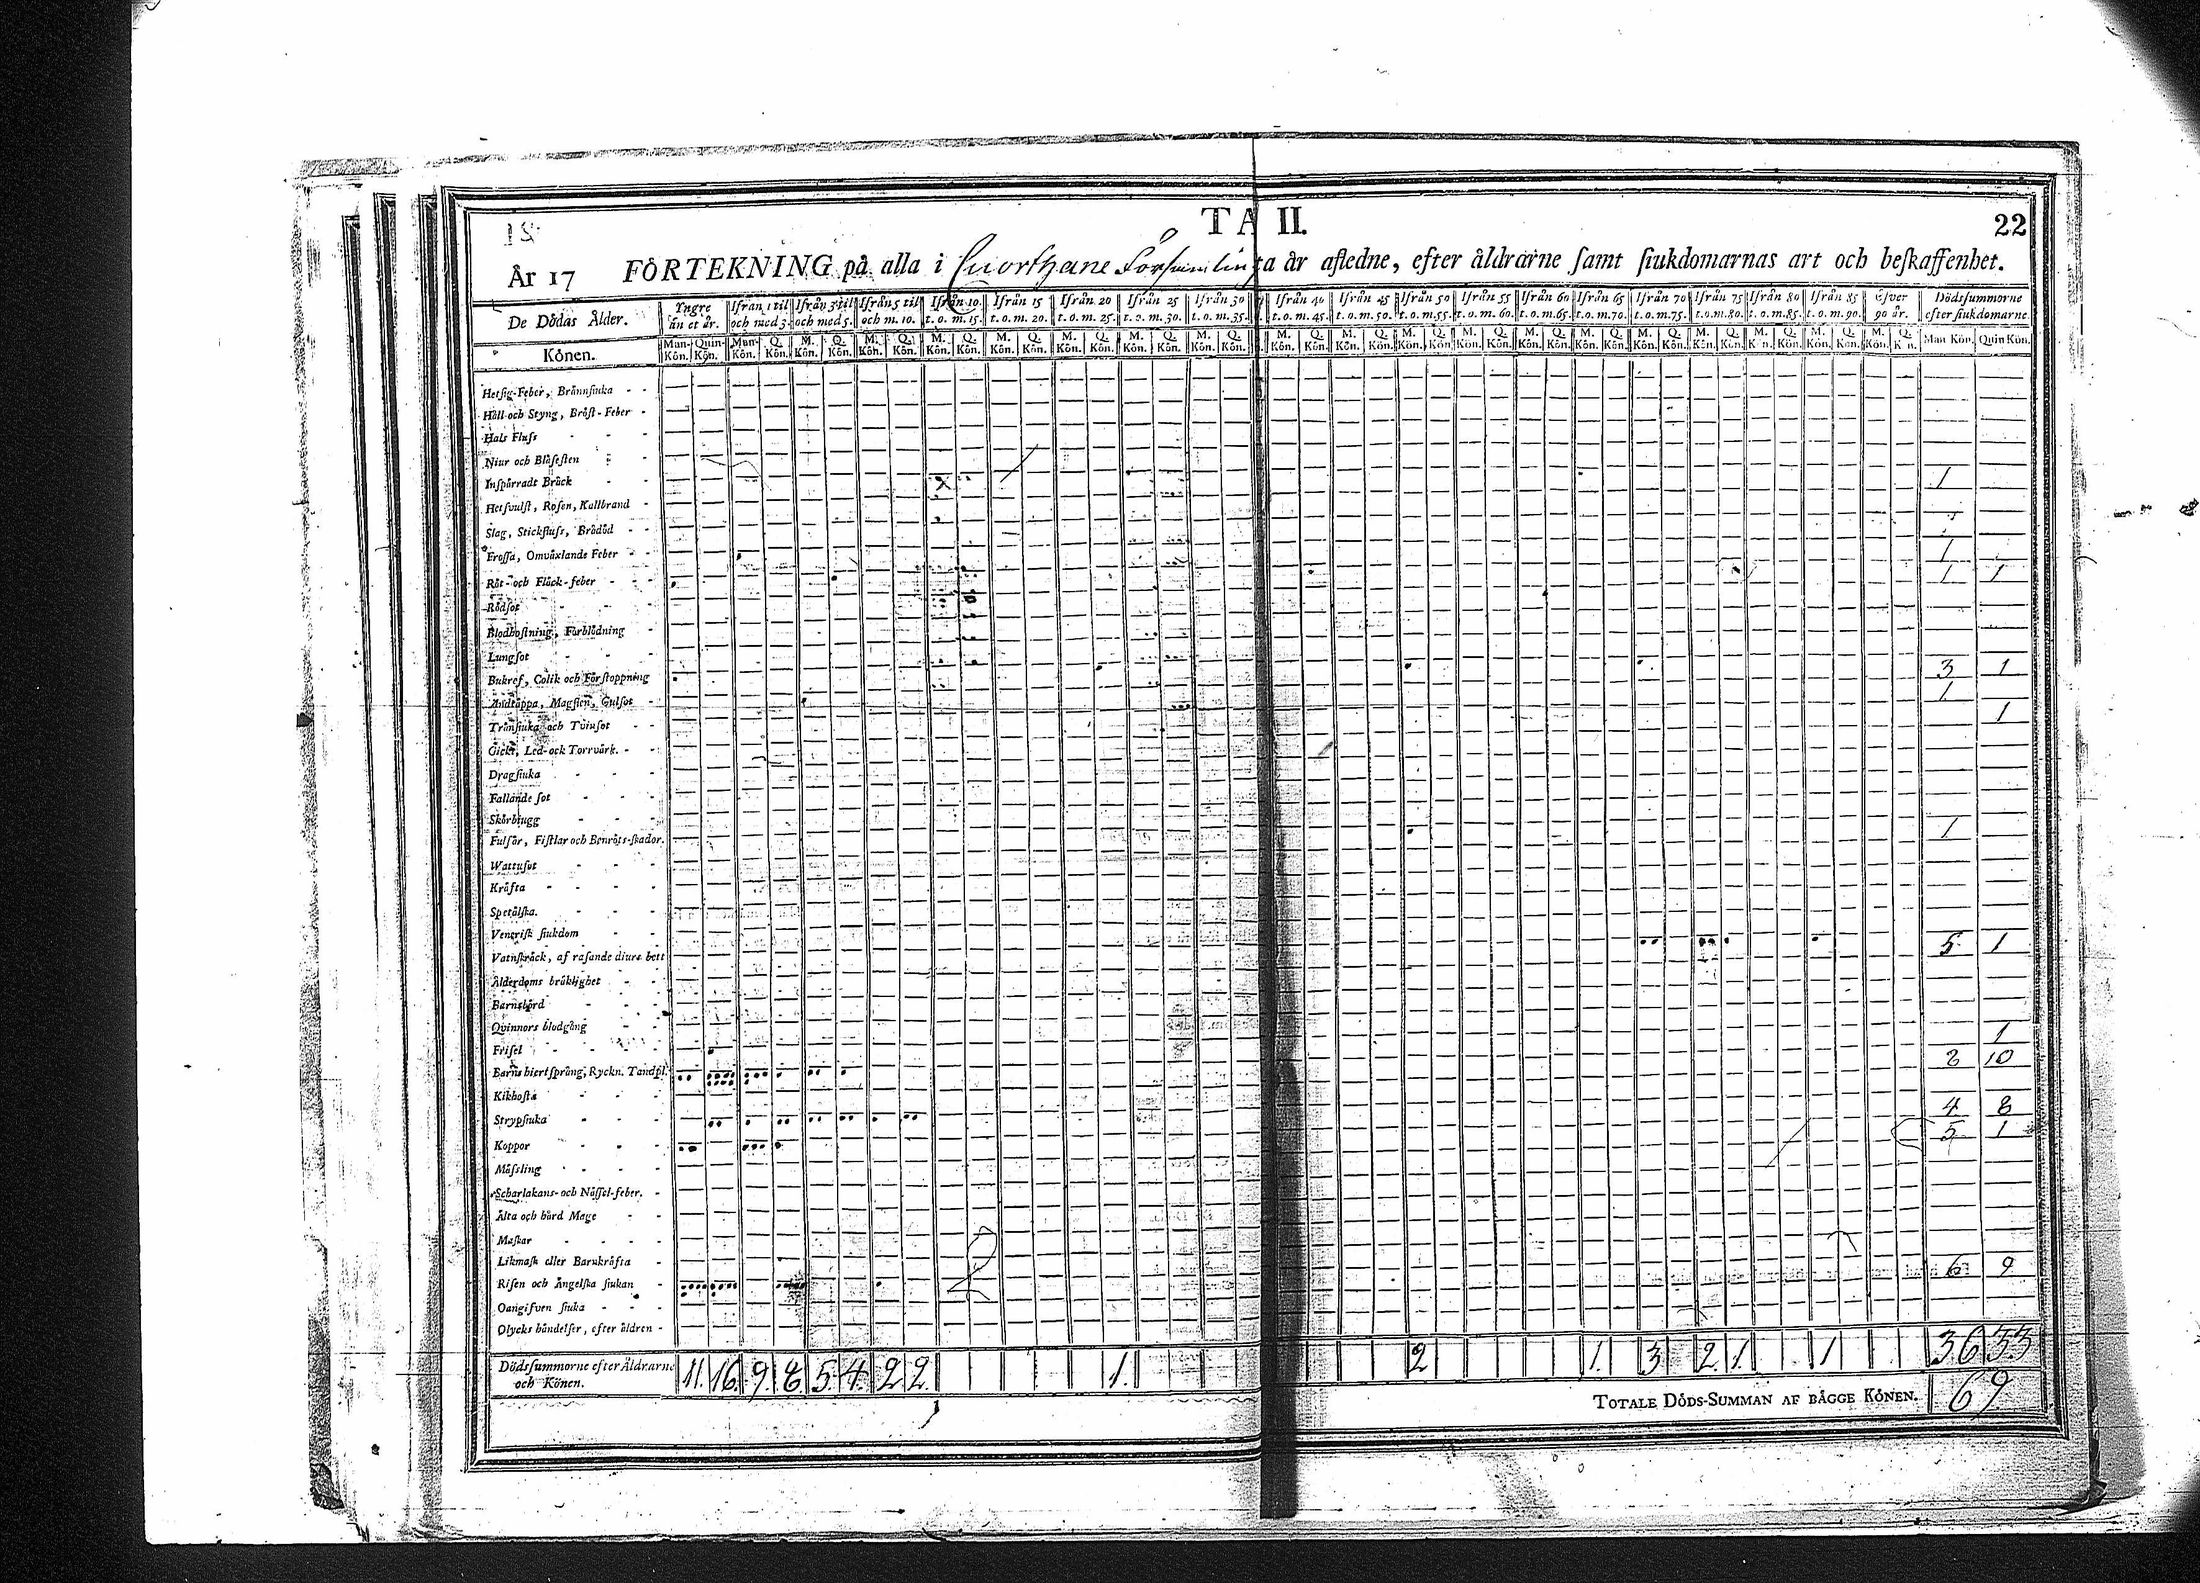 TA II.
22
År 17 FÖRTEKNING på alla i Cuorthane Församlinga år afledne, efter åldrarne samt siukdomarnas art och beskaffenhet.
De Dödas Ålder. Yngre än et år. Ifrån 1 til och med 3. Ifrån 3 til och med 5. Ifrån 5 til och m. 10. Ifrån 10 t. o. m. 15. Ifrån 15 t. o. m. 20. Ifrån 20 t. o. m. 25. Ifrån 25 t. o. m. 30. Ifrån 30 t. o. m. 35. Ifrån 40 t. o. m. 45. Ifrån 45 t. o. m. 50. Ifrån 50 t. o. m. 55. Ifrån 55 t. o. m. 60. Ifrån 60 t. o. m. 65. Ifrån 65 t. o. m. 70. Ifrån 70 t. o. m. 75. Ifrån 75 t. o. m. 80. Ifrån 80 t. o. m. 85. Ifrån 85 t. o. m. 90. Öfver 90 år. Dödssummorne efter siukdomarne
Könen. Man-Kön. Quin-Kön. Man-Kön. Q. Kön. M. Kön. Q. Kön. M. Kön. Q. Kön. M. Kön. Q. Kön. M. Kön. Q. Kön. M. Kön. Q. Kön. M. Kön. Q. Kön. M. Kön. Q. Kön. M. Kön. Q. Kön. M. Kön. Q. Kön. M. Kön. Q. Kön. M. Kön. Q. Kön. M. Kön. Q. Kön. M. Kön. Q. Kön. M. Kön. Q. Kön. M. Kön. Q. Kön. M. Kön. Q. Kön. M. Kön. Q. Kön. M. Kön. Q. Kön. Man Kön. Quin Kön.
Hetsig-Feber, Brännsiuka
Håll och Styng, Bröst-Feber
Hals Fluss
Niur och Blåsesten
Inspärradt Bråck 1
Hetsvulst, Rosen, Kallbrand
Slag, Stickfluss, Brådöd
Frossa, Omväxlande Feber 1
Röt- och Fläck-feber 1 1
Rödsot
Blodhostning, Förblödning
Lungsot
Bukref, Colik och Förstoppning 3 1
Andtäppa, Magsten, Gulsot 1
Trånsiuka och Tvinsot 1
Gickt, Led- och Torrvärk.
Dragsiuka
Fallande sot
Skörbiugg
Fulsår, Fistlar och Benröts-skador. 1
Wattusot
Kräfta
Spetälska.
Venerisk siukdom
Vatnskräck, af rasande diurs bett 5 1
Ålderdoms bräklighet
Barnsbörd
Qvinnors blodgång
Frisel 1
Barns hiertsprång, Ryckn. Tandpl. 8 10
Kikhosta
Strypsiuka 4 8
Koppor 5 1
Mässling
Scharlakans- och Nässel-feber.
Älta och hård Mage
Maskar
Likmask eller Barnkräfta
Risen och Ängelska siukan 6 9
Oangifven siuka
Olycks händelser, efter åldren
Dödssummorne efter Åldrarne och Könen. 11. 16. 9. 8. 5. 4. 2 2. 1. 2 1. 3 2. 1. 1 36 33
TOTALE DÖDS-SUMMAN AF BÅGGE KÖNEN. 69